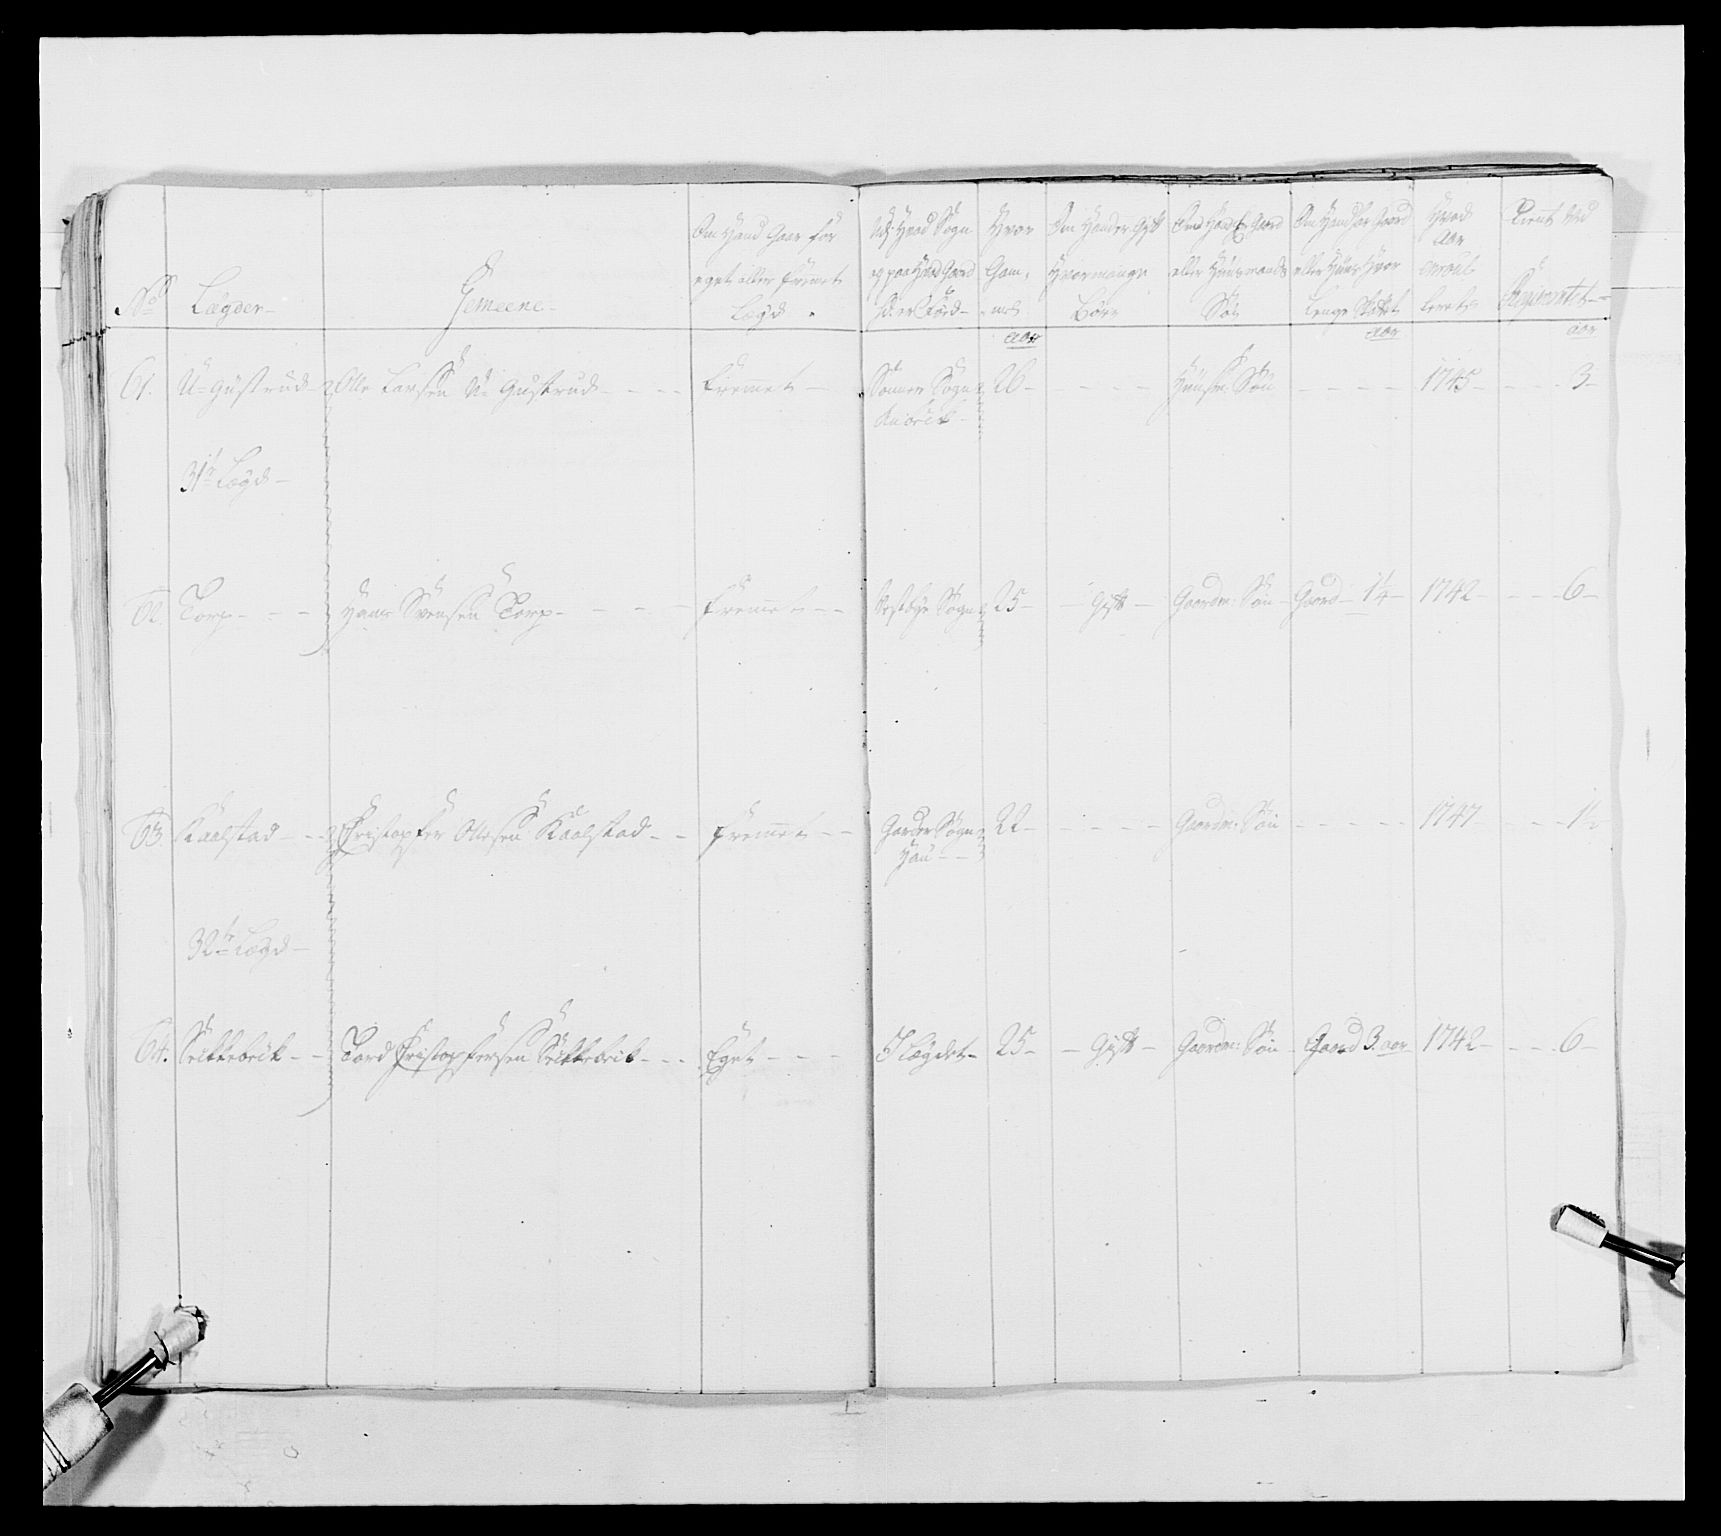 No Lægder Gemeene Om Hand Gaar for eget eller fremet Lægd Udj Hvad Sogn og paa Hvad Gaard Hand er Fød Hvor Gam- mel aar Om Hand er Gift Hvormange Børn Om Hand Er Gaard eller Huusmands Søn Om Hand har Gaard eller Huus Hvor Lenge Aar Hvad aar enroul- leret Tient Ved Regimentet aar
61. N= Gustrud Olle Larsen N= Gustrud Fremet Sonner Sogn 26 Huusm: Søn 1745 3
31te Lægd
62. Torp Hans Svensen Torp Fremet Vestbye Sogn 25 Gift Gaardm: Søn Gaard 1¼ 1742 6
63. Kaalstad Christopher Ollesen Kaalstad Fremet Garder Sogn 22 Gaardm: Søn 1747 1½
Hau
32te Lægd
64. Tord Christophersen Eget I Lægdet 25 Gift Gaardm: Søn Gaard 3. aar 1742 6